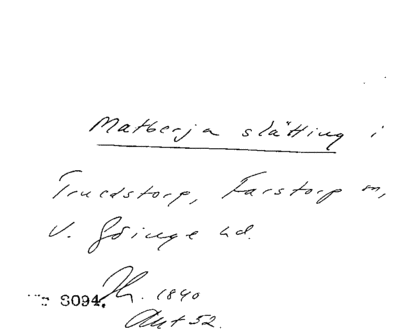 Matberja slätting i
Truedstorp, Farstorp sn,
V. Göinge hd.
8094. Th. 1840
Ant 52.